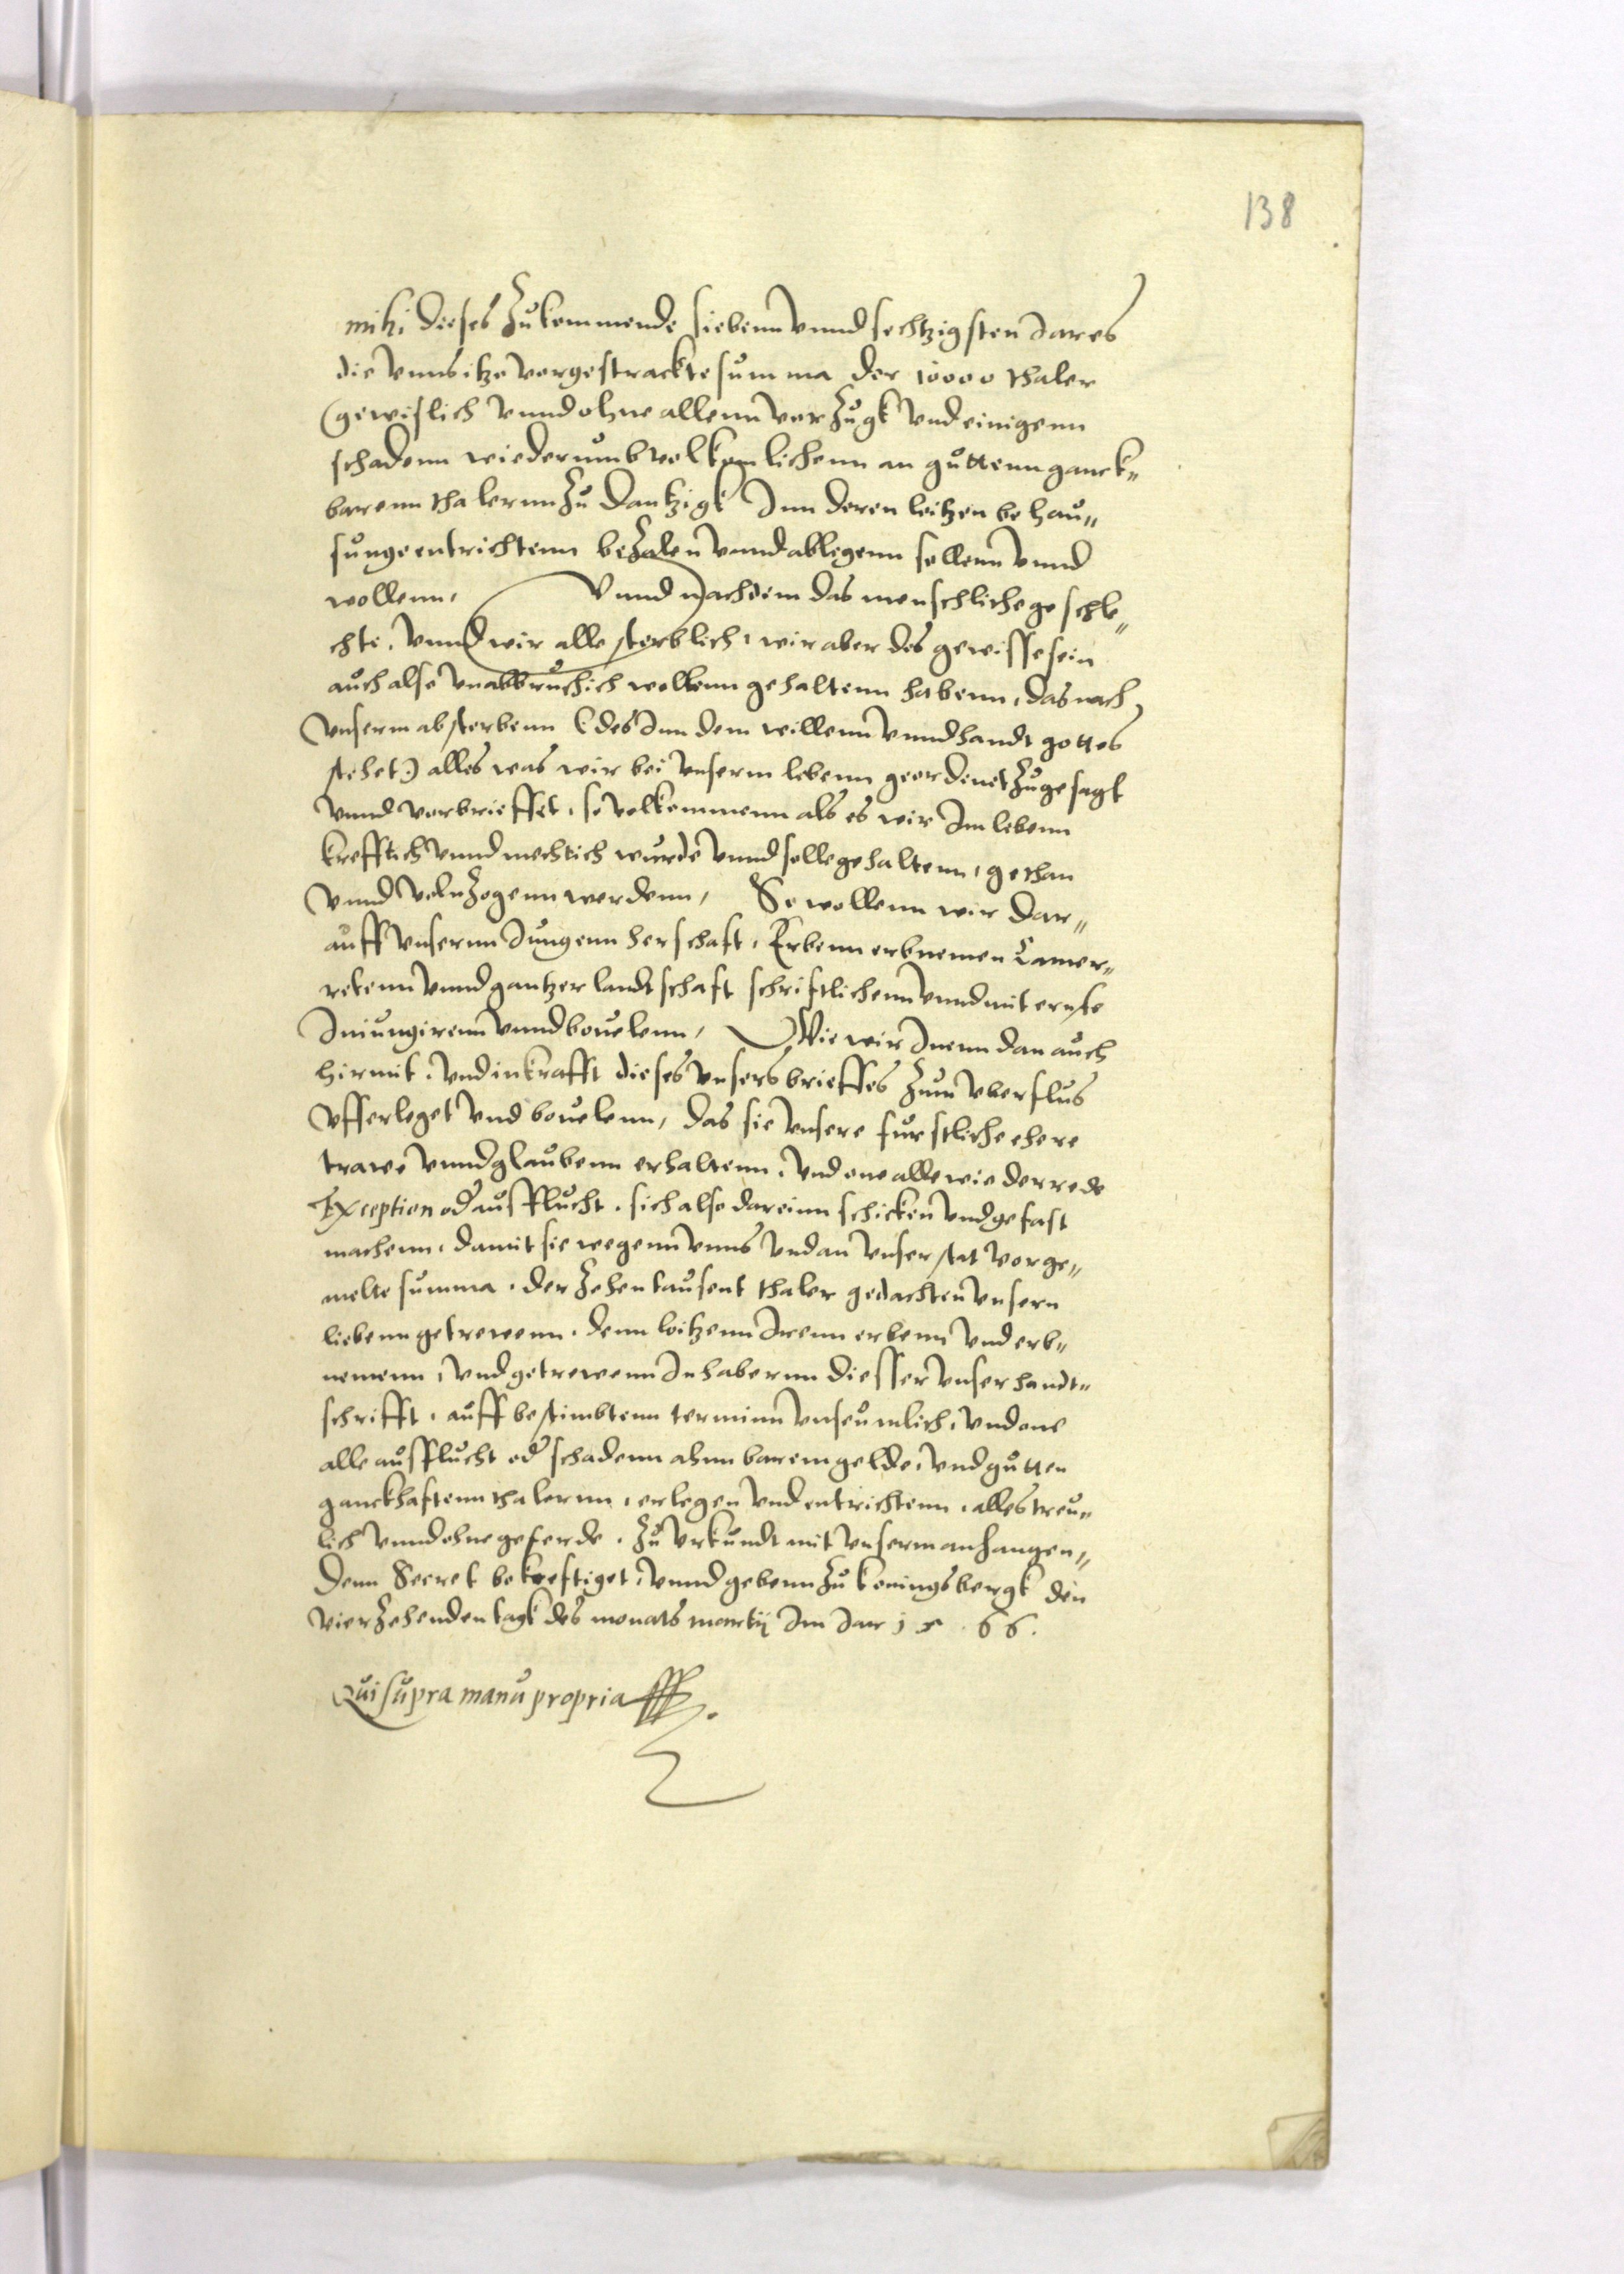 138
mihi dieses Zukommende siebenn vnnd sechtzigsten Jares
die vnns itzo vorgestrackte summa der 10000 thaler
gewislich vnnd ohne allenn vorZugk vnd einigenn
schadenn wiederumb volkomlichenn an guttenn ganck„
barenn thalernn Zu Dantzigk Inn deren loitzen behau„
sunge entrichtenn beZalen vnnd ablegenn sollenn vnnd
wollenn, Vnnd nachdem das menschliche geschle„
chte, vnnd wir alle sterblich, wir aber des gewisse sein
auch also vnabbruchich wollenn gehaltenn habenn, das nach
vnserm absterbenn (: des Inn dem willenn vnnd handt gottes
stehet :) alles was wir bei vnserm lebenn geordenet Zugesagt
vnnd vorbrieffet, so volkommenn als es wir Im lebenn
krefftich vnnd mechtich wurde vnnd solle gehaltenn, gethan
vnnd volnZogenn werdenn, So wollenn wir dar„
auff vnsernn Jungenn herschaft, Erbenn erbnemen Camer„
retenn vnnd gantzer landtschaft schriftlichenn vnnd mit ernste
Iniungirenn vnnd bouelenn, Wie wir Inenn dan auch
hirmit, vnd in krafft dieses vnsers brieffes Zum vberflus
vfferleget vnd bouelenn, das sie vnsere furstliche ehere
trawe vnnd glaubenn erhaltenn, vnd one alle wiederrede
Exception od ausflucht, sich also dareinn schicken vnd gefast
machenn, damit sie wegenn vnns vnd an vnser stat vorge„
melte summa, der Zehen tausent thaler gedachten vnsern
liebenn getrewenn, denn loitzenn Irenn erbenn vnd erb„
nemenn, vnd getrewenn Inhabernn diesser vnser handt„
schrifft, auff bestimbtenn terminn vnseumlich, vnd one
alle ausflucht od schadenn ahnn barem gelde, vnd gutten
ganckhaftenn thalernn, erlegen vnd entrichtenn, alles treu„
lich vnnd ohne geferde. Zu vrkundt mit vnserm anhangen„
denn Secret bekreftiget, vnnd gebenn Zu koningsbergk den
vierZehenden tagk des monats martij Im Jar 1566.
Qui supra manu propria